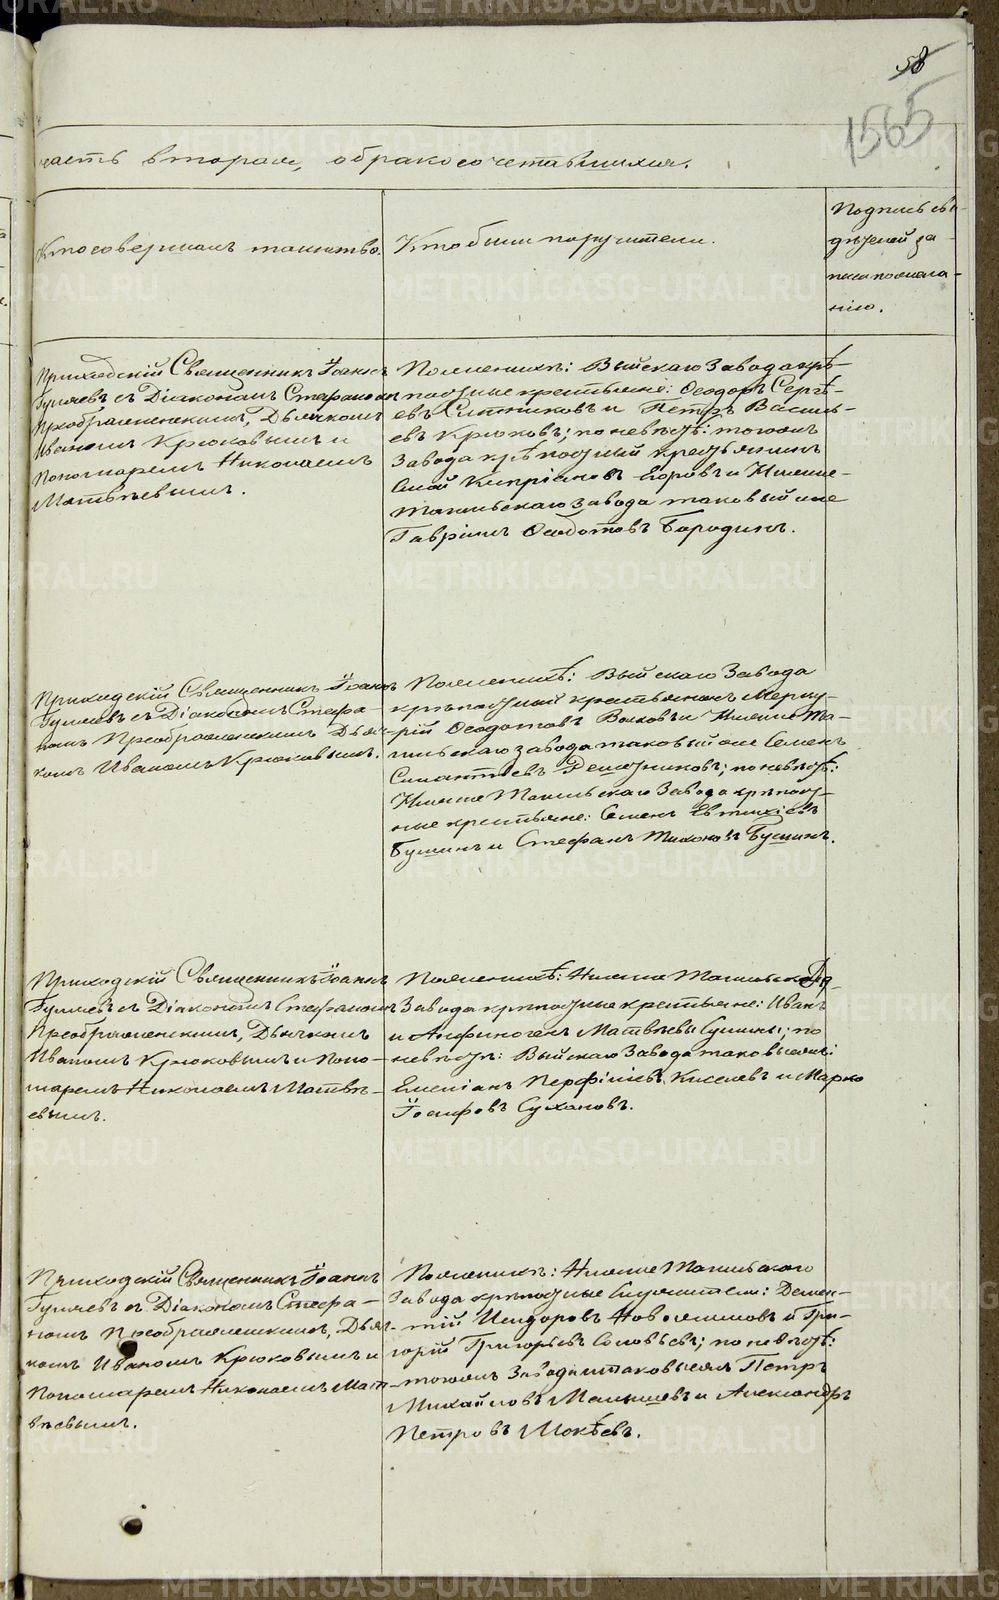 58
1565
часть вторая, о бракосочетавшихся.
Кто совершалъ таинство.
Кто были поручители.
Подпись сви-
дѣтелей за
писи по жела-
нію.
Приходскій Священникъ Іоаннъ
съ Діакономъ Стефаномъ
Преображенскимъ, Дьячкомъ
Иваномъ Крюковымъ и
Пономаремъ Николаемъ
Матвѣевымъ.
По женихѣ: Выйскаго Завода крѣ-
постные крестьяне: Ѳеодоръ Сергѣ-
евъ Ситниковъ и Петръ Василь-
евъ Крюковъ; по невѣстѣ: тогожъ
Завода крѣпостный крестьянинъ
Кипріановъ и Нижне-
тагильскаго завода таковый же
Гавріилъ Ѳеодотовъ Бородинъ.
Приходскій Священникъ Іоаннъ
съ Діакономъ Стефа-
номъ Преображенскимъ Дьяч-
комъ Иваномъ Крюковымъ.
По женихѣ: Выйскаго Завода
крѣпостный крестьянинъ Мерку-
рій Ѳеодотовъ Волковъ и Нижне Та-
гильскаго завода таковый же Семенъ
Решетниковъ; по невѣстѣ:
Нижне Тагильскаго Завода крѣпост-
ные крестьяне: Семенъ Евтихіевъ
и Стефанъ Тихоновъ
Приходскій Священникъ Іоаннъ
съ Діакономъ Стефаномъ
Преображенскимъ, Дьячкомъ
Иваномъ Крюковымъ и Поно-
маремъ Николаемъ Матвѣ-
евымъ.
По женихѣ: Нижне Тагильскаго
Завода крѣпостные крестьяне: Иванъ
и Анфиногенъ Матвѣевы; по
невѣстѣ: Выйскаго Завода таковые же:
Емеліанъ Перфильевъ Киселевъ и Марко
Іосифовъ Сухановъ.
Приходскій Священникъ Іоаннъ
съ Діакономъ Стефа-
номъ Преображенскимъ, Дьяч-
комъ Иваномъ Крюковымъ и
Пономаремъ Николаемъ Мат-
вѣевымъ.
По женихѣ: Нижне Тагильскаго
Завода крѣпостные служители: Демен-
тій Исидоровъ и Гри-
горій Григорьевъ Соловьевъ; по невѣстѣ:
тогожъ Завода таковые же Петръ
Михайловъ Малышевъ и Александръ
Петровъ Мокѣевъ.
METRIKI.GASO-URAL.RU